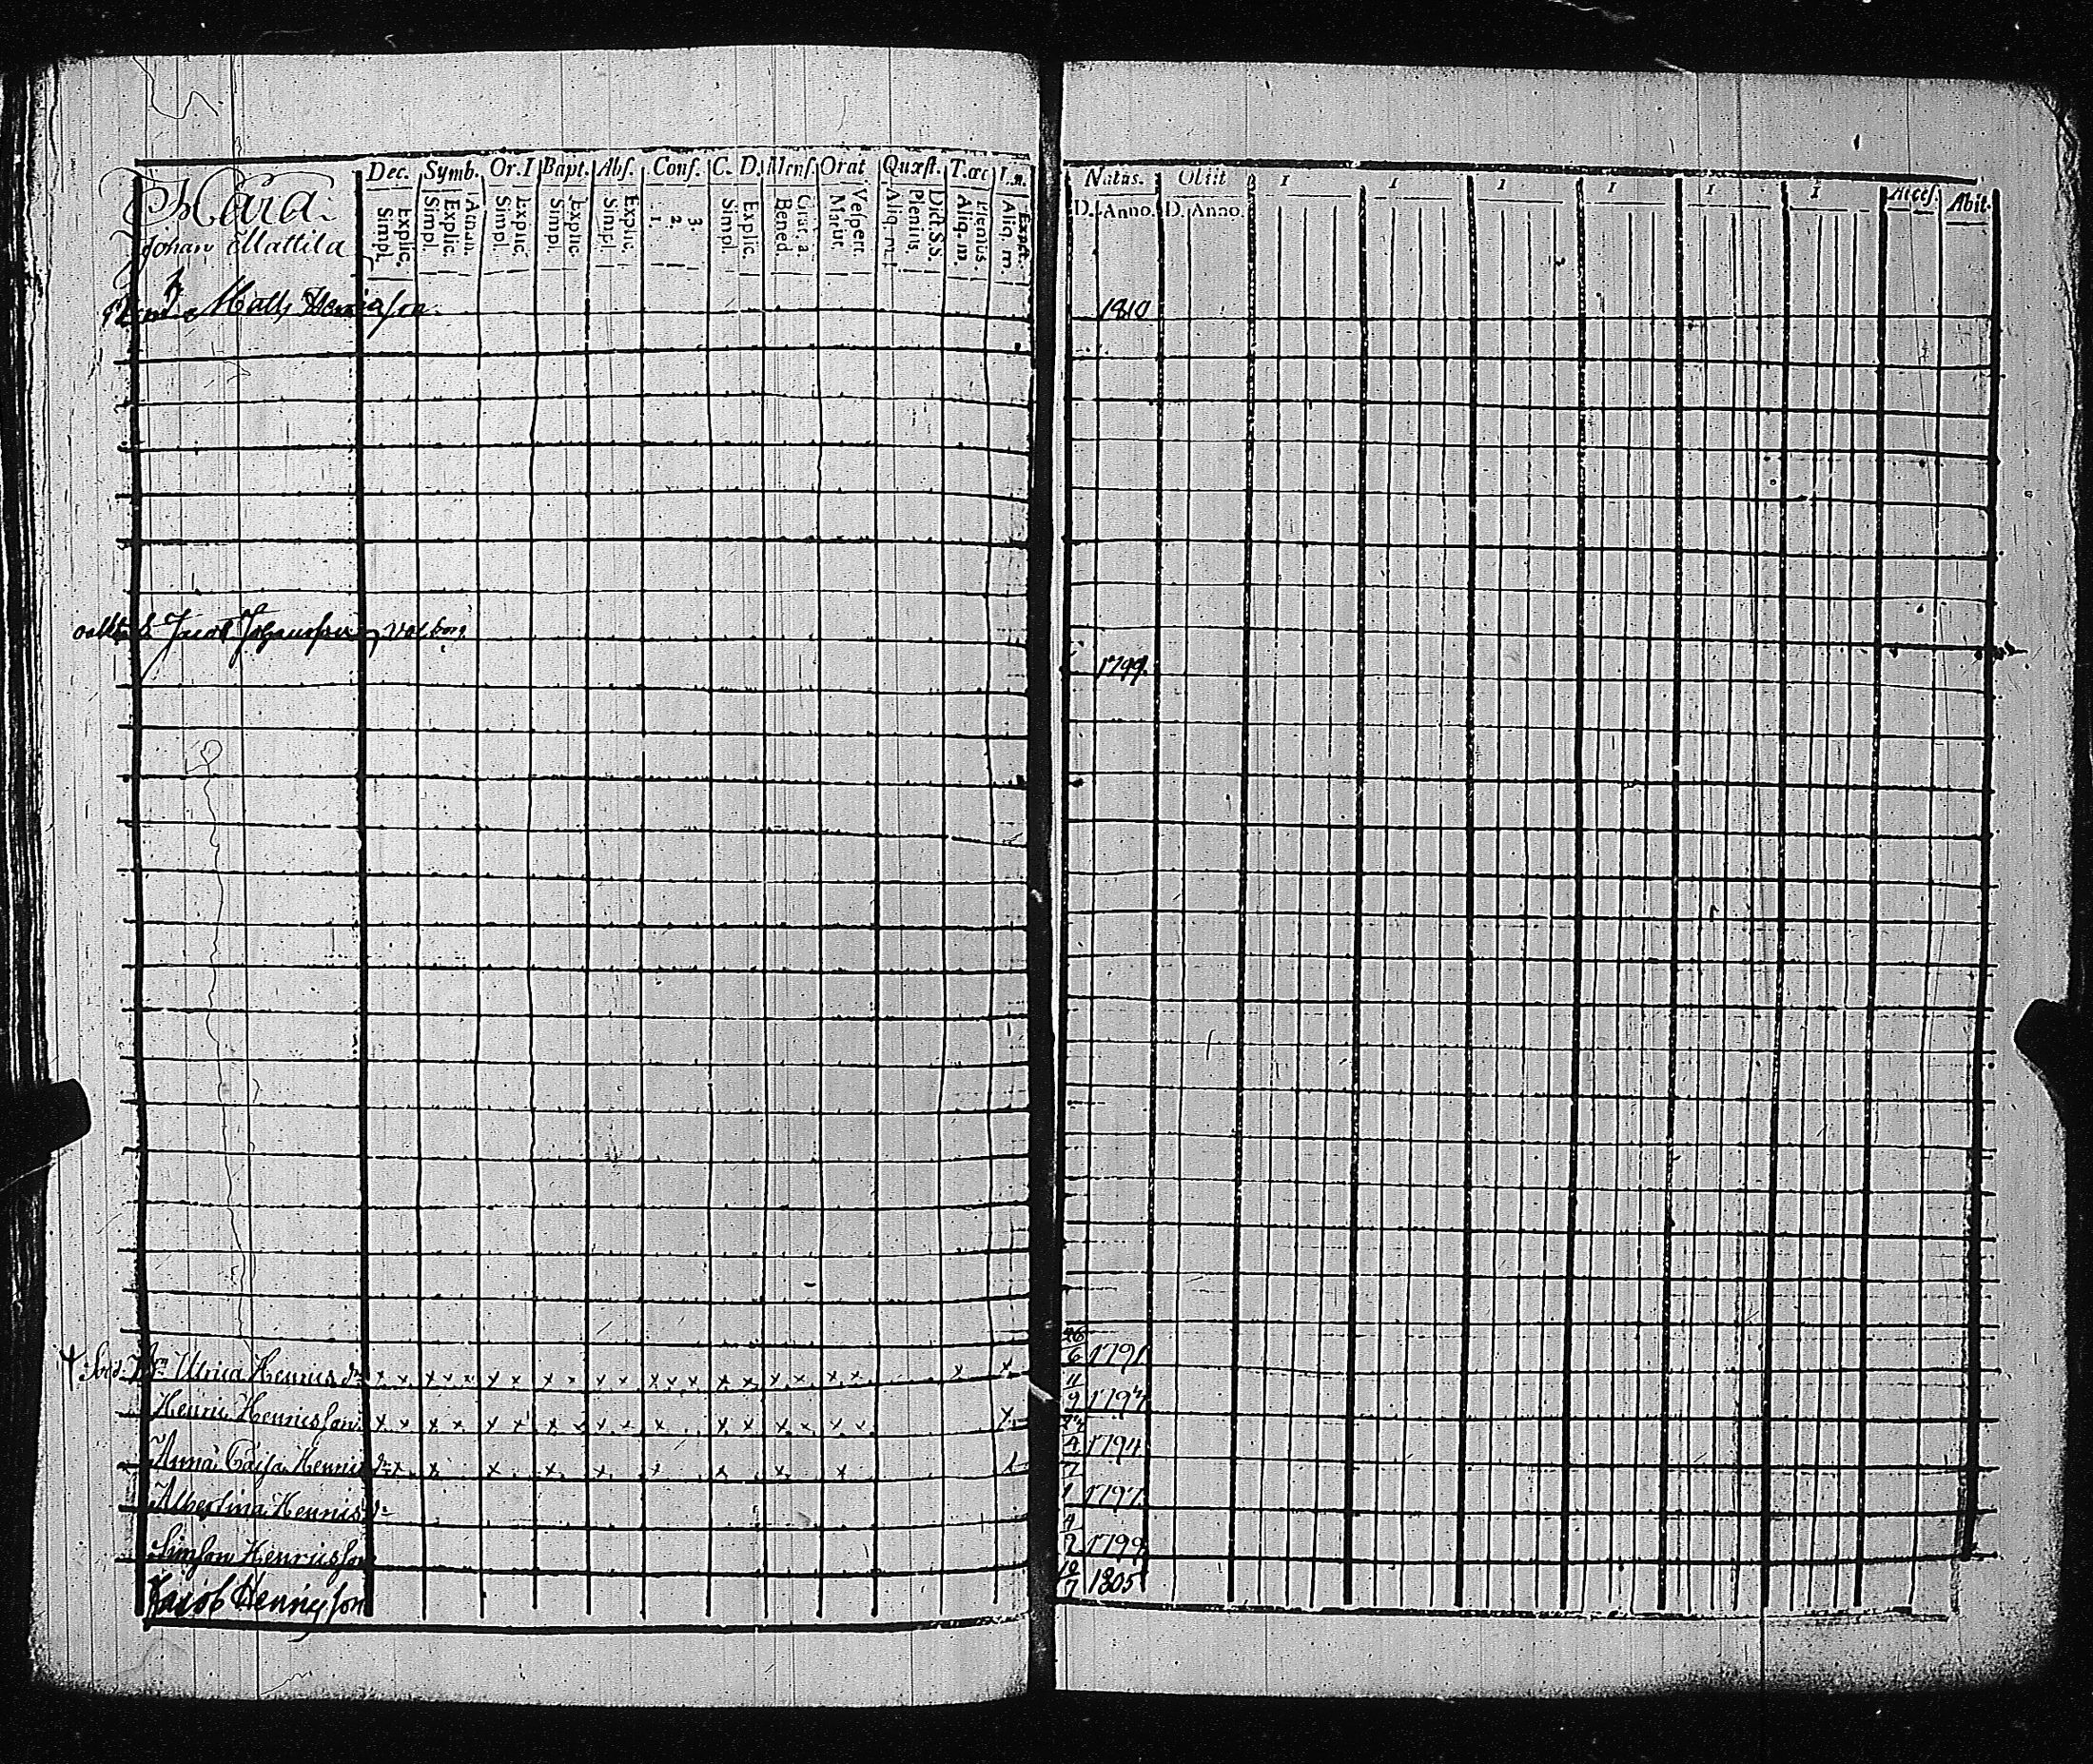 Dec. Symb. Or. I Bapt. Abſ. Conf. C. D. Menſ. Orat Quæſt. T. œc
Explic. Simpl. Athan. Explic. Simpl. Explic. Simpl. Explic. Simpl. Explic. Simpl. 3. 2. 1. Explic. Simpl. Grat. a Bened. Veſpert. Matut. Dict. S. S. Plenius. Aliq. m. Plenius. Aliq. m. Expect. Aliq. m.
Natus. Obiit 1 1 1 1 1 1 Acceſ. Abit.
D. Anno. D. Anno.
Johan Mattila
Matts Henricsson 1810
Jacob Johansson
1799.
Ulrica Henricsdr x x x x x x x x x x x x x x x x x x x x x x x 26/6 1791
Henric Henricsson x x x x x x x x x x x x x x x x x x x 11/9 1792
Anna Cajsa Henricsdr x x x x x x x x x x 1794
Albertina Henricsdr 7/1 1797
Simson Henricsson 4/2 1799
Jacob Henricsson 10/7 1805